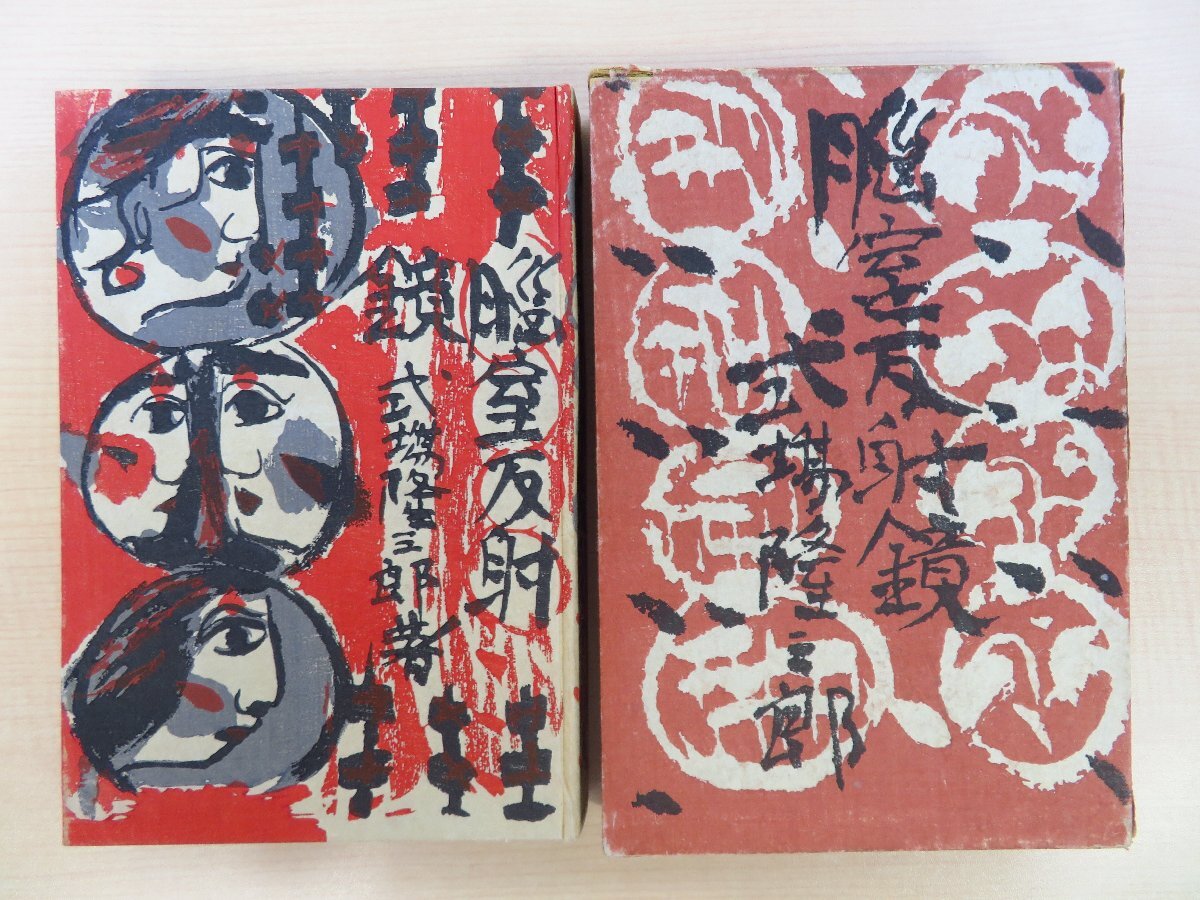 脳室反射
鏡
式場隆三郎著
脳室反射鏡
式場隆三郎